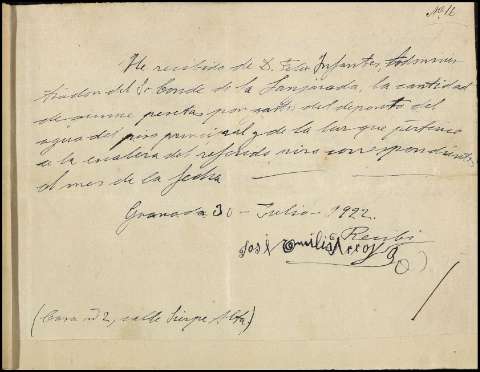 Nº 16
He recibido de D. Felix Infantes, Adminis
trador del Sr Conde de la Jarosa, la cantidad
de quince pesetas por gasto del deposito del
agua del piso principal y de la luz que pertenece
a la escalera del referido piso correspondiente,
el mes de la fecha
Granada 30 - Julio - 1922.
Recibi
José Emilio Arroyo
(Casa nº 2, calle Sierpe Alta)